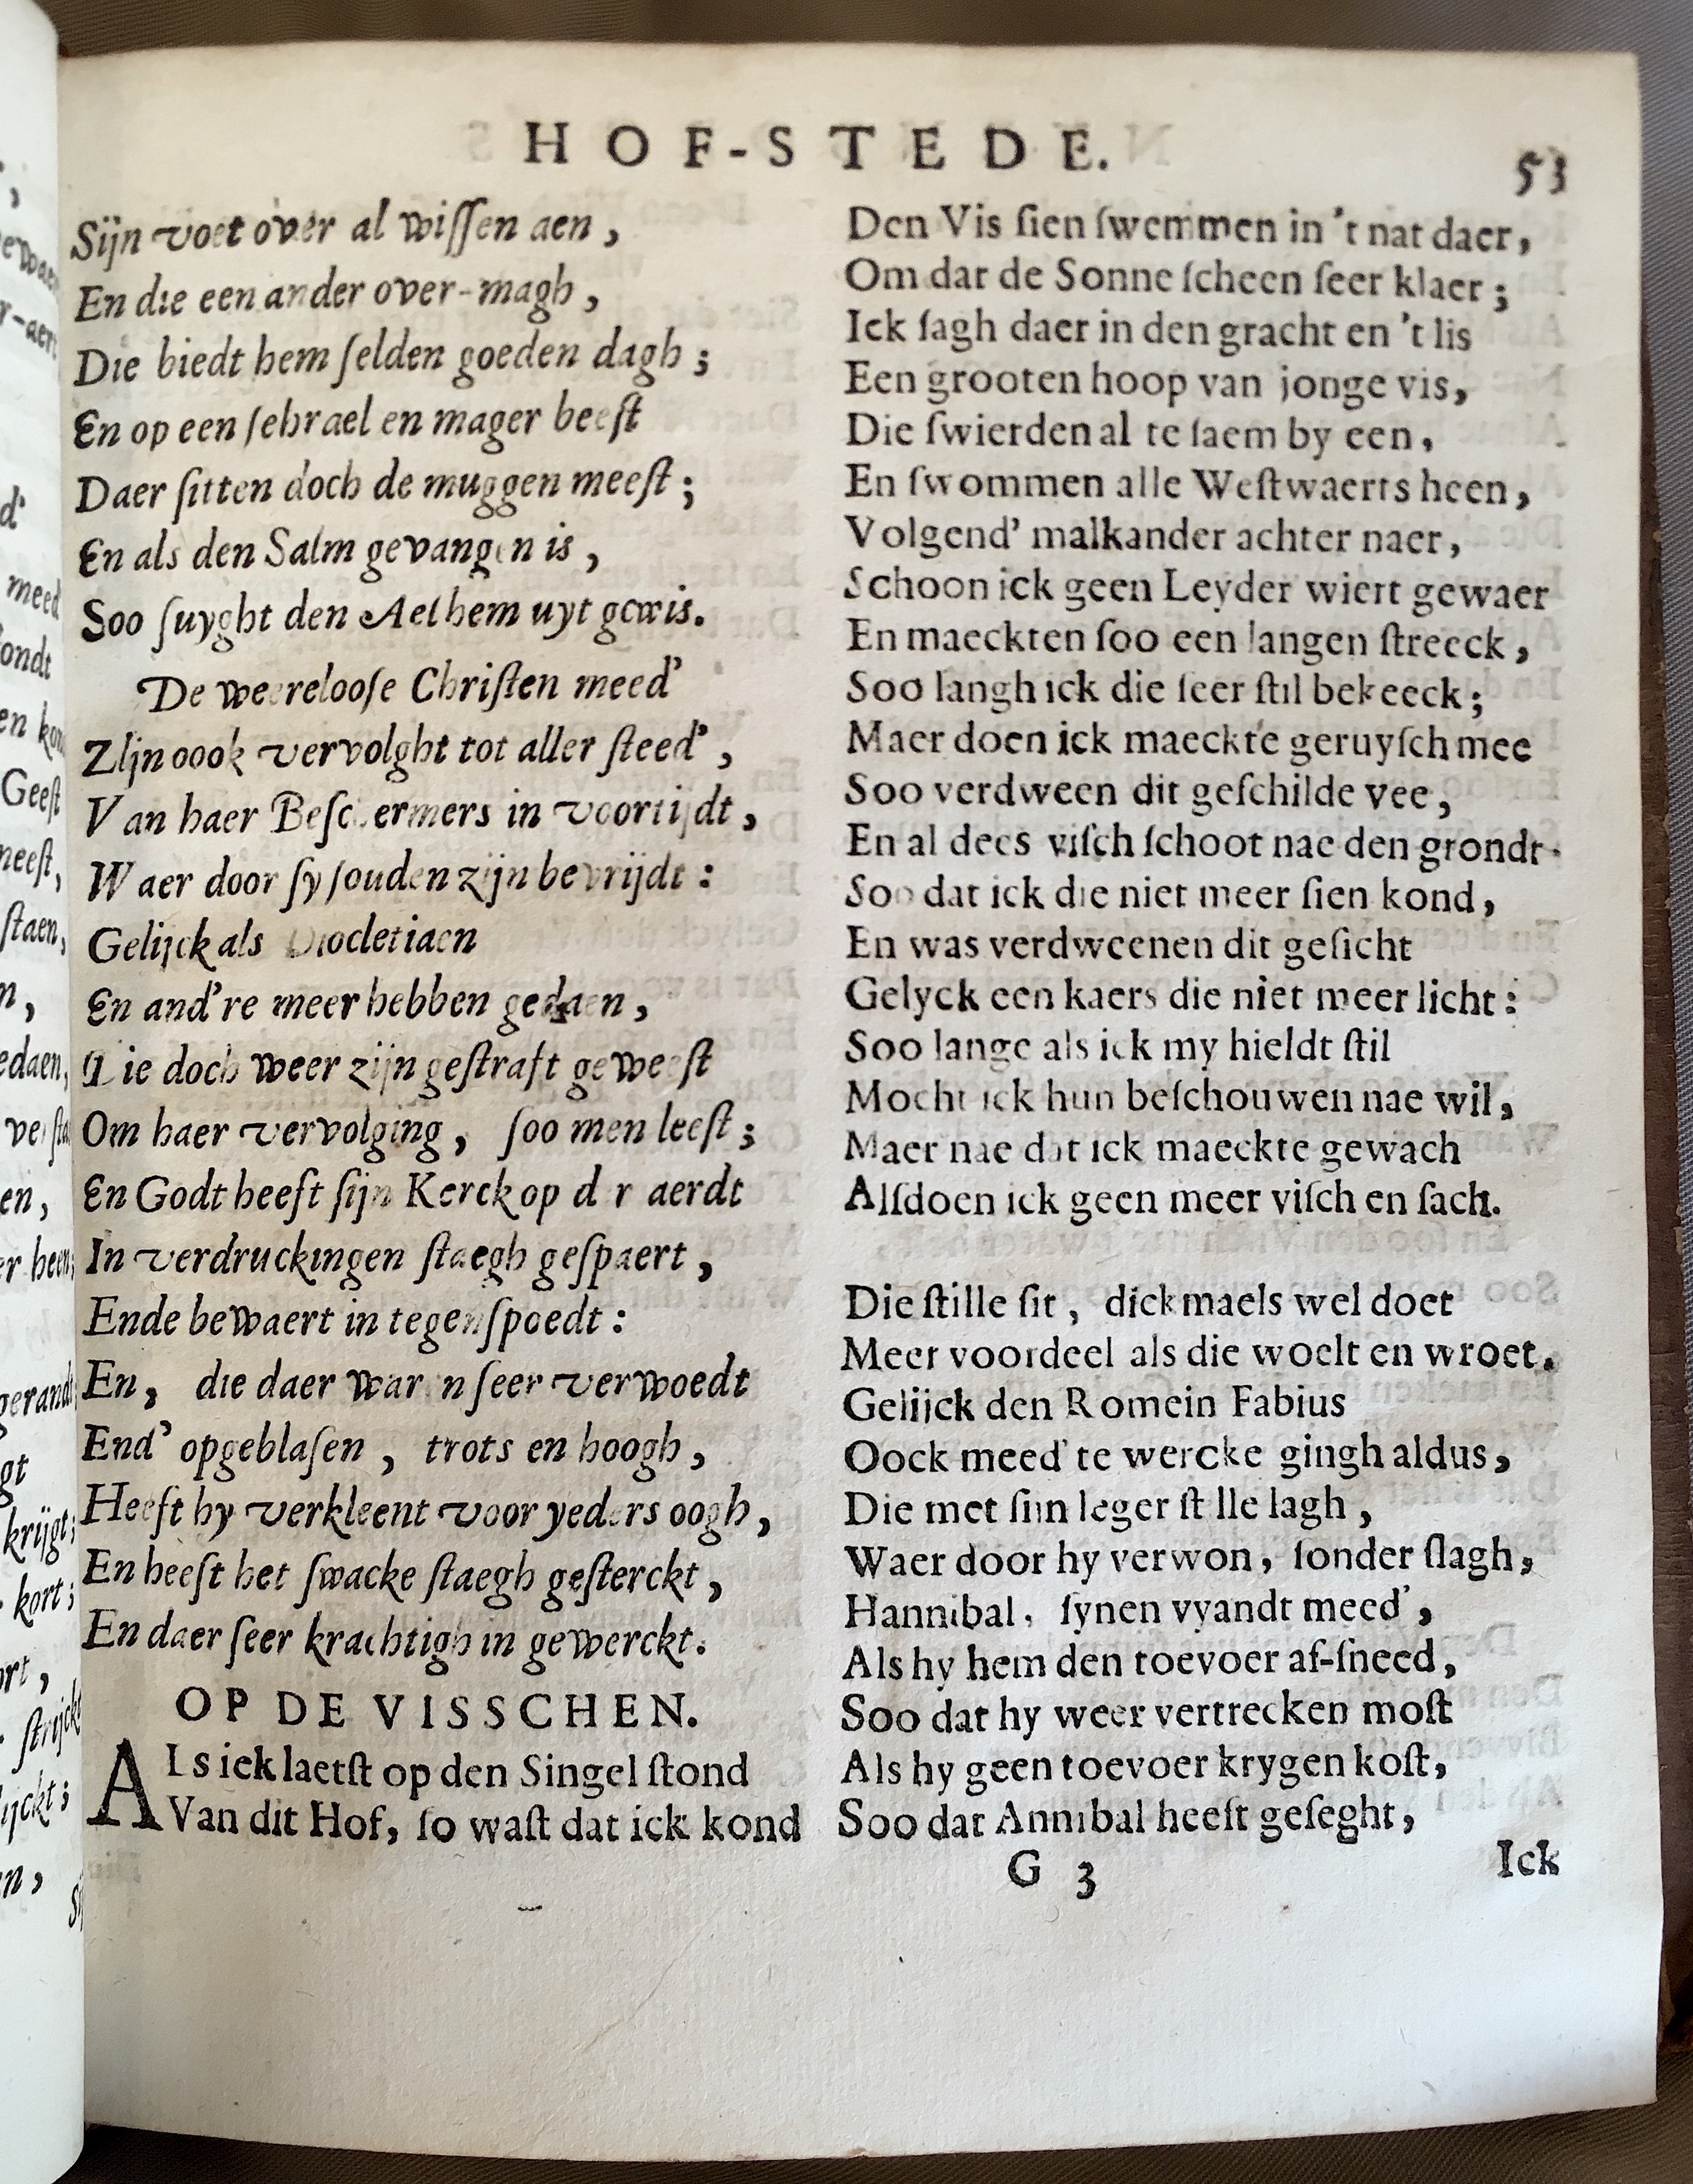 HOF-STEDE.
53
Sijn voet over al wiſſen aen,
En die een ander over-magh,
Die biedt hem ſelden goeden dagh;
En op een ſchrael en mager beeſt
Daer ſitten doch de muggen meeſt;
En als den Salm gevangen is,
Soo ſuyght den Aelhem uyt gewis.
De weerelooſe Chriſten meed'
Zijn oook vervolght tot aller ſteed',
Van haer Beſchermers in voortijdt,
Waer door ſy ſouden zijn bevrijdt:
Gelijck als Diocletiaen
En and're meer hebben gedaen,
Die doch weer zijn geſtraft geweeſt
Om haer vervolging, ſoo men leeſt;
En Godt heeft ſijn Kerck op d r aerdt
In verdruckingen ſtaegh geſpaert,
Ende bewaert in tegenſpoedt:
En, die daer waren ſeer verwoedt
End' opgeblaſen, trots en hoogh,
Heeft hy verkleent voor yeders oogh,
En heeft het ſwacke ſtaegh geſterckt,
En daer ſeer krachtigh in gewerckt.
OP DE VISSCHEN.
ALs ick laetſt op den Singel ſtond
Van dit Hof, ſo waſt dat ick kond
Den Vis ſien ſwemmen in 't nat daer,
Om dat de Sonne ſcheen ſeer klaer;
Ick ſagh daer in den gracht en 't lis
Een grooten hoop van jonge vis,
Die ſwierden al te ſaem by een,
En ſwommen alle Weſtwaerts heen,
Volgend' malkander achter naer,
Schoon ick geen Leyder wiert gewaer
En maeckten ſoo een langen ſtreeck,
Soo langh ick die ſeer ſtil bekeeck;
Maer doen ick maeckte geruyſch mee
Soo verdween dit geſchilde vee,
En al dees viſch ſchoot nae den grondt.
Soo dat ick die niet meer ſien kond,
En was verdweenen dit geſicht
Gelyck een kaers die niet meer licht:
Soo lange als ick my hieldt ſtil
Mocht ick hun beſchouwen nae wil,
Maer nae dat ick maeckte gewach
Alſdoen ick geen meer viſch en ſach.
Die ſtille ſit, dickmaels wel doet
Meer voordeel als die woelt en wroet.
Gelijck den Romein Fabius
Oock meed' te wercke gingh aldus,
Die met ſijn leger ſt lle lagh,
Waer door hy verwon, ſonder ſlagh,
Hannibal, ſynen vyandt meed',
Als hy hem den toevoer af-ſneed,
Soo dat hy weer vertrecken moſt
Als hy geen toevoer krygen koſt,
Soo dat Annibal heeft geſeght,
G 3
Ick